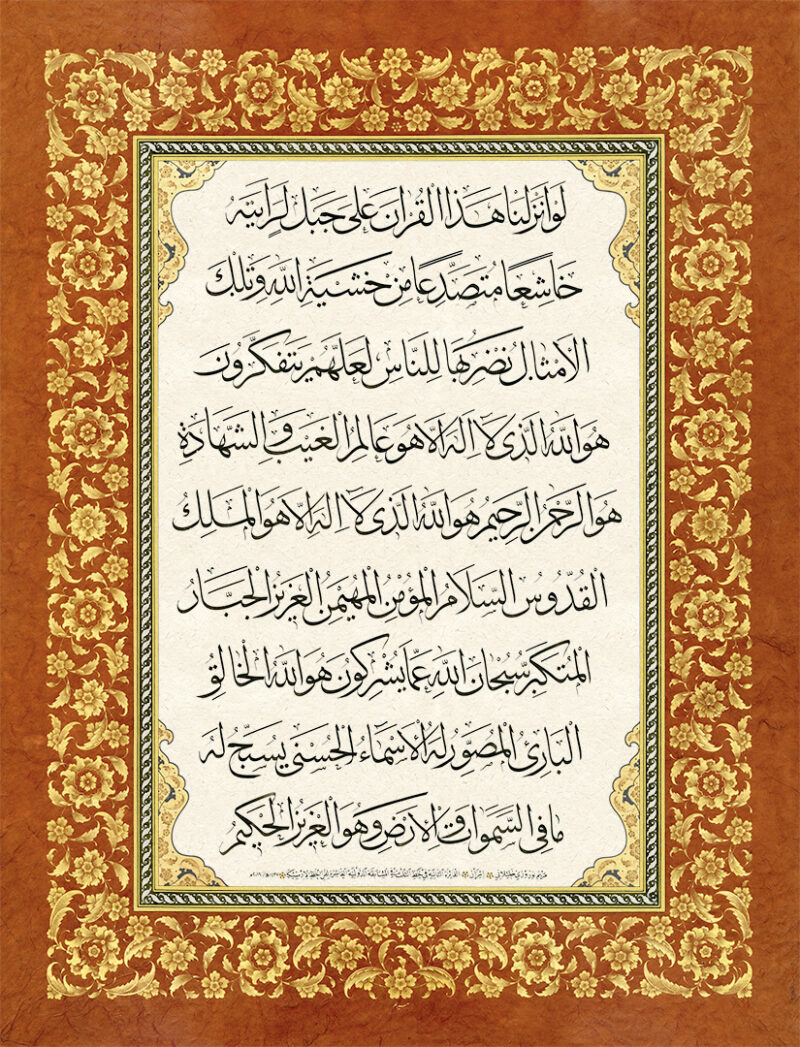 لو انزلنا هذا القران على جبل لرايته
خاشعا متصدعا من خشية الله وتلك
الامثال نضربها للناس لعلهم يتفكرون
هو الله الذى لا اله الا هو عالم الغيب والشهادة
هو الرحمن الرحيم هو الله الذى لا اله الا هو الملك
القدوس السلام المؤمن المهيمن العزيز الجبار
المتكبر سبحان الله عما يشركون هو الله الخالق
البارئ المصور له الاسماء الحسنى يسبح له
ما فى السموات والارض وهو العزيز الحكيم